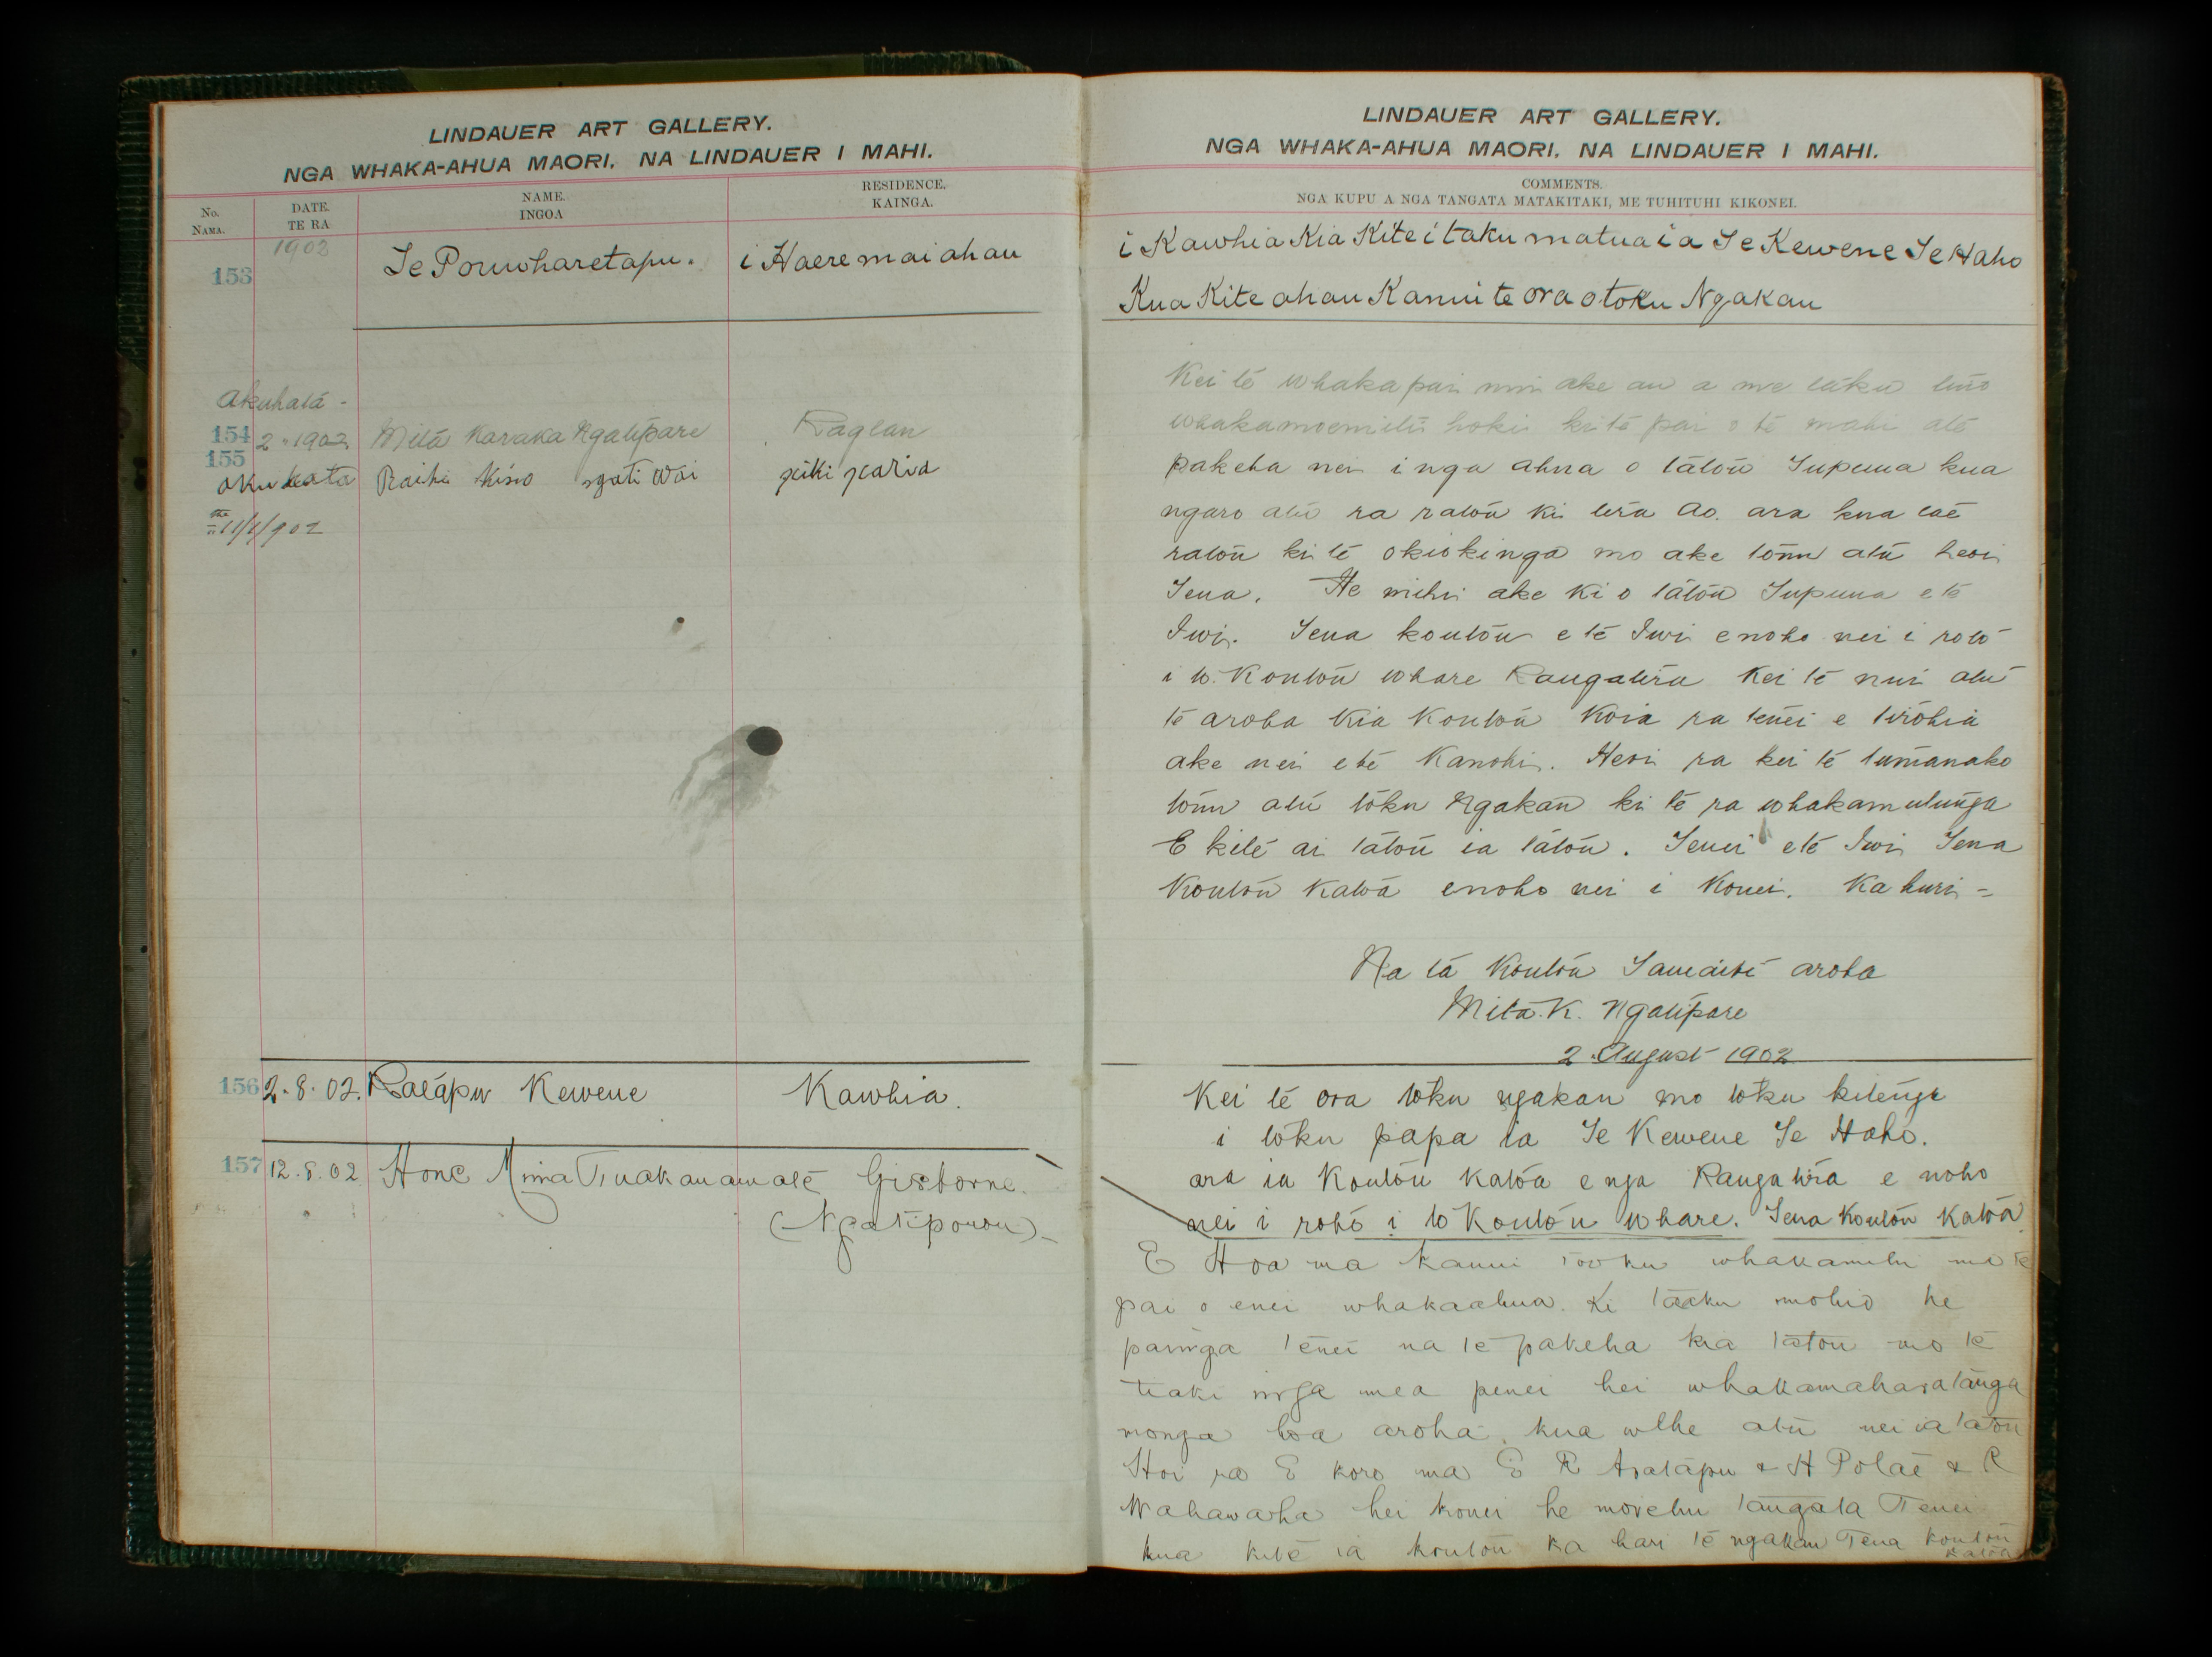 LINDAUER ART GALLERY.
NGA WHAKA-AHUA MAORI. NA LINDAUER I MAHI.
No. NAMA.
DATE. TE RA
NAME. INGOA
RESIDENCE. KAINGA.
153 1902 Te Pouwharetapu. i Haere mai ahau
Akuhata -
154 2 " 1902 Mita Karaka Ngatipare Raglan
155
okuhata Raiha Kino ngati Wai piki paria
the 11/1/902
156 2.8.02. Ratapu Kewene Kawhia.
157 12.8.02 Hone Gisborne.
(Ngatiporou)-
LINDAUER ART GALLERY.
NGA WHAKA-AHUA MAORI. NA LINDAUER I MAHI.
COMMENTS.
NGA KUPU A NGA TANGATA MATAKITAKI, ME TUHITUHI KIKONEI.
i Kawhia Kia Kite i taku matua i a Te Kewene Te Haho
Kua Kite ahau Kanui te ora o toku Ngakau
Kei te whakapai nui ake au a me taku tino
whakamoemiti hoki ki te pai o te mahi a te
pakeha nei i nga ahua o tatou Tupuna kua
ngaro atu ra ratou ki tera Ao. ara kua tae
ratou ki te okiokinga mo ake tonu atu heoi
Tena. He mihi ake ki o tatou Tupuna e te
Iwi. Tena koutou e te Iwi e noho nei i roto
i to Koutou whare Rangatira Kei te nui atu
te aroha Kia Koutou Koia ra tenei e tirohia
ake nei e te Kanohi. Heoi ra kei te tumanako
tonu atu toku Ngakau ki te ra whakamutunga
E kite ai tatou ia tatou. Tenei e te Iwi Tena
Koutou Katoa e noho nei i Konei. Ka huri -
Na ta Koutou Tamaiti aroha
Mita. K. Ngatipare
2. August 1902
Kei te ora toku ngakau mo toku kitenga
i toku papa ia Te Kewene Te Haho.
ara ia Koutou Katoa e nga Rangatira e noho
nei i roto i to Koutou whare. Tena Koutou Katoa
E Hoa ma Kanui tooku whakamihi mo te
pai o enei whakaahua. Ki taaku mohio he
painga tenei na te pakeha kia tatou mo te
tiaki i nga mea penei hei whakamaharatanga
mo nga hoa aroha. kua wehe atu nei ia tatou
Hoi ra E koro ma E R Aratapu & H Potae & R
Wahawaha hei konei he morehu tangata Tenei
kua kite ia koutou ka hari te ngakau Tena koutou
katoa